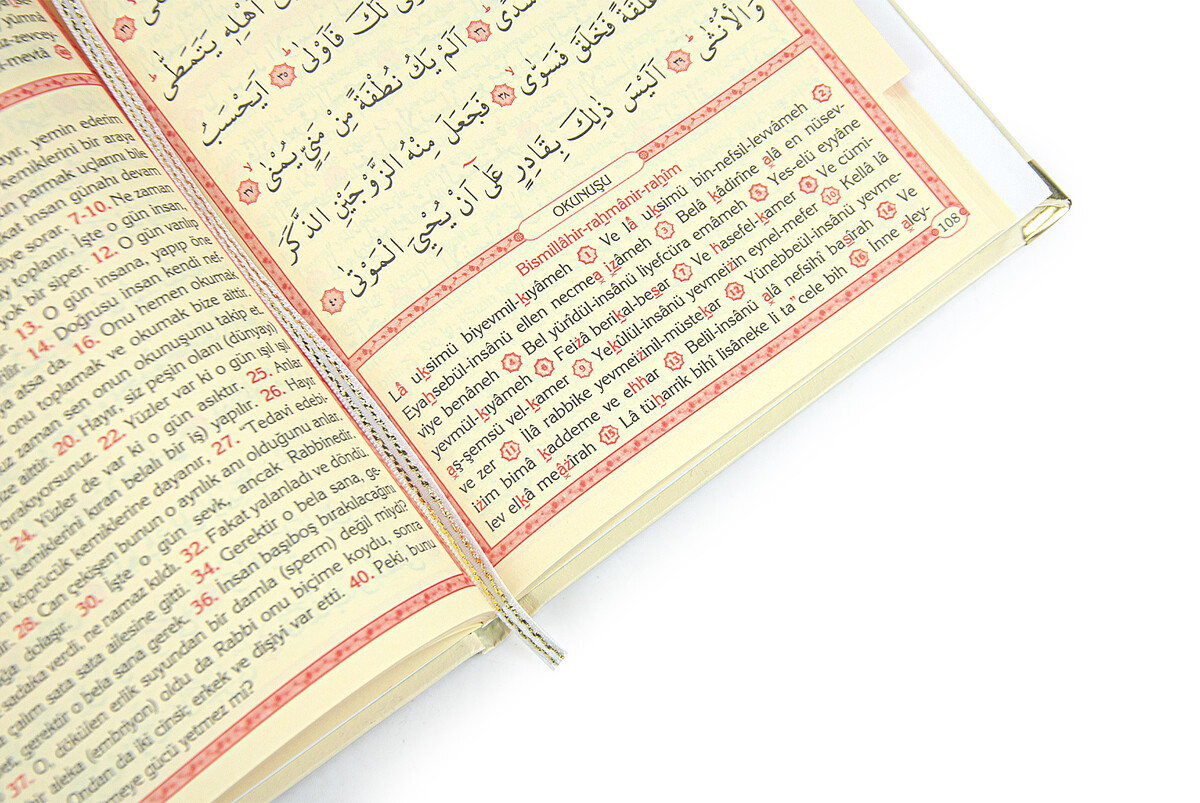 yümna
z-zevcey-
k-mevtâ
ayır, yemin ederim
kemiklerini bir araya
un parmak uçlarını bile
akat insan günahı devam
diye sorar. 7-10. Ne zaman
y toplanır, İşte o gün insan,
yok bir siper. 12. O gün varılıp
r. 13. O gün insana, yapıp öne
ğitir. 14. Doğrusu insan kendi nef-
ya atsa da. 16. Onu hemen okumak
z onu toplamak ve okumak bize aittir.
uz zaman sen onun okunuşunu takip et.
ize aittir. 20. Hayır, siz peşin olanı (dünyayı)
bırakıyorsunuz. 22. Yüzler var ki o gün ışıl ışıl
r. 24. Yüzler de var ki o gün asıktır. 25. Anlar
el kemiklerini kıran belalı bir iş) yapılır. 26. Hayır
n köprücük kemiklerine dayanır, 27. "Tedavi edebi-
ir. 28. Can çekişen bunun o ayrılık anı olduğunu anlar.
ağa dolaşır. 30. İşte o gün sevk, ancak Rabbinedir.
sadaka verdi, ne namaz kıldı. 32. Fakat yalanladı ve döndü.
a çalım sata sata ailesine gitti. 34. Gerektir o bela sana, ge-
er, gerektir o bela sana gerek. 36. İnsan başıboş bırakılacağını
37. O, dökülen erlik suyundan bir damla (sperm) değil miydi?
bir aleka (embriyon) oldu da Rabbi onu biçime koydu, sonra
Ondan da iki cinsi; erkek ve dişiyi var etti. 40. Peki, bunu
meye gücü yetmez mi?
اَهْلِهٖ يَتَمَطّٰى
لَكَ فَاَوْلٰى ﴿٣٥﴾ اَيَحْسَبُ
سُدًى ﴿٣٦﴾ اَلَمْ يَكُ نُطْفَةً مِنْ مَنِيٍّ يُمْنٰى ﴿٣٧﴾
عَلَقَةً فَخَلَقَ فَسَوّٰى ﴿٣٨﴾ فَجَعَلَ مِنْهُ الزَّوْجَيْنِ الذَّكَرَ
وَالْاُنْثٰى ﴿٣٩﴾ اَلَيْسَ ذٰلِكَ بِقَادِرٍ عَلٰٓى اَنْ يُحْيِيَ الْمَوْتٰى ﴿٤٠﴾
OKUNUŞU
Bismillâhir-rahmânir-rahîm
Lâ uksimü biyevmil-kıyâmeh 1 Ve lâ uksimü bin-nefsil-levvâmeh 2
Eyahsebül-insânü ellen necmea izâmeh 3 Belâ kâdirîne alâ en nüsev-
viye benâneh 4 Bel yürîdül-insânü liyefcüra emâmeh 5 Yes-elü eyyâne
yevmül-kıyâmeh 6 Feizâ berikal-besar 7 Ve hasefel-kamer 8 Ve cümi-
aş-şemsü vel-kamer 9 Yekûlül-insânü yevmeizin eynel-mefer 10 Kellâ lâ
ve zer 11 İlâ rabbike yevmeizinil-müstekar 12 Yünebbeül-insânü yevme-
izim bimâ kaddeme ve ehhar 13 Belil-insânü alâ nefsihî basîrah 14 Ve
lev elkâ meâzîrah 15 Lâ tüharrik bihî lisâneke li ta"cele bih 16 İnne aley-
108